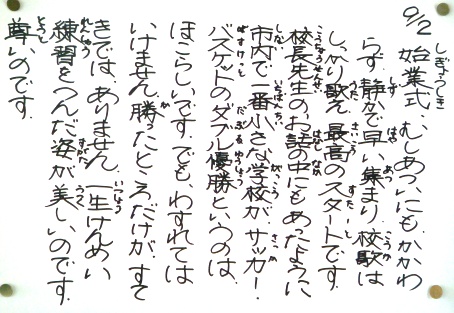 9/2 始業式、むしあついにもかかわ
らず、静かで早い集まり、校歌は
しっかり歌え、最高のスタートです。
校長先生のお話の中にもあったように
市内で一番小さな学校が、サッカー・
バスケットのダブル優勝というのは、
ほこらしいです。でも、わすれては
いけません。勝ったところだけが、すて
きでは、ありません。一生けんめい
練習をつんだ姿が美しいのです。
尊いのです。